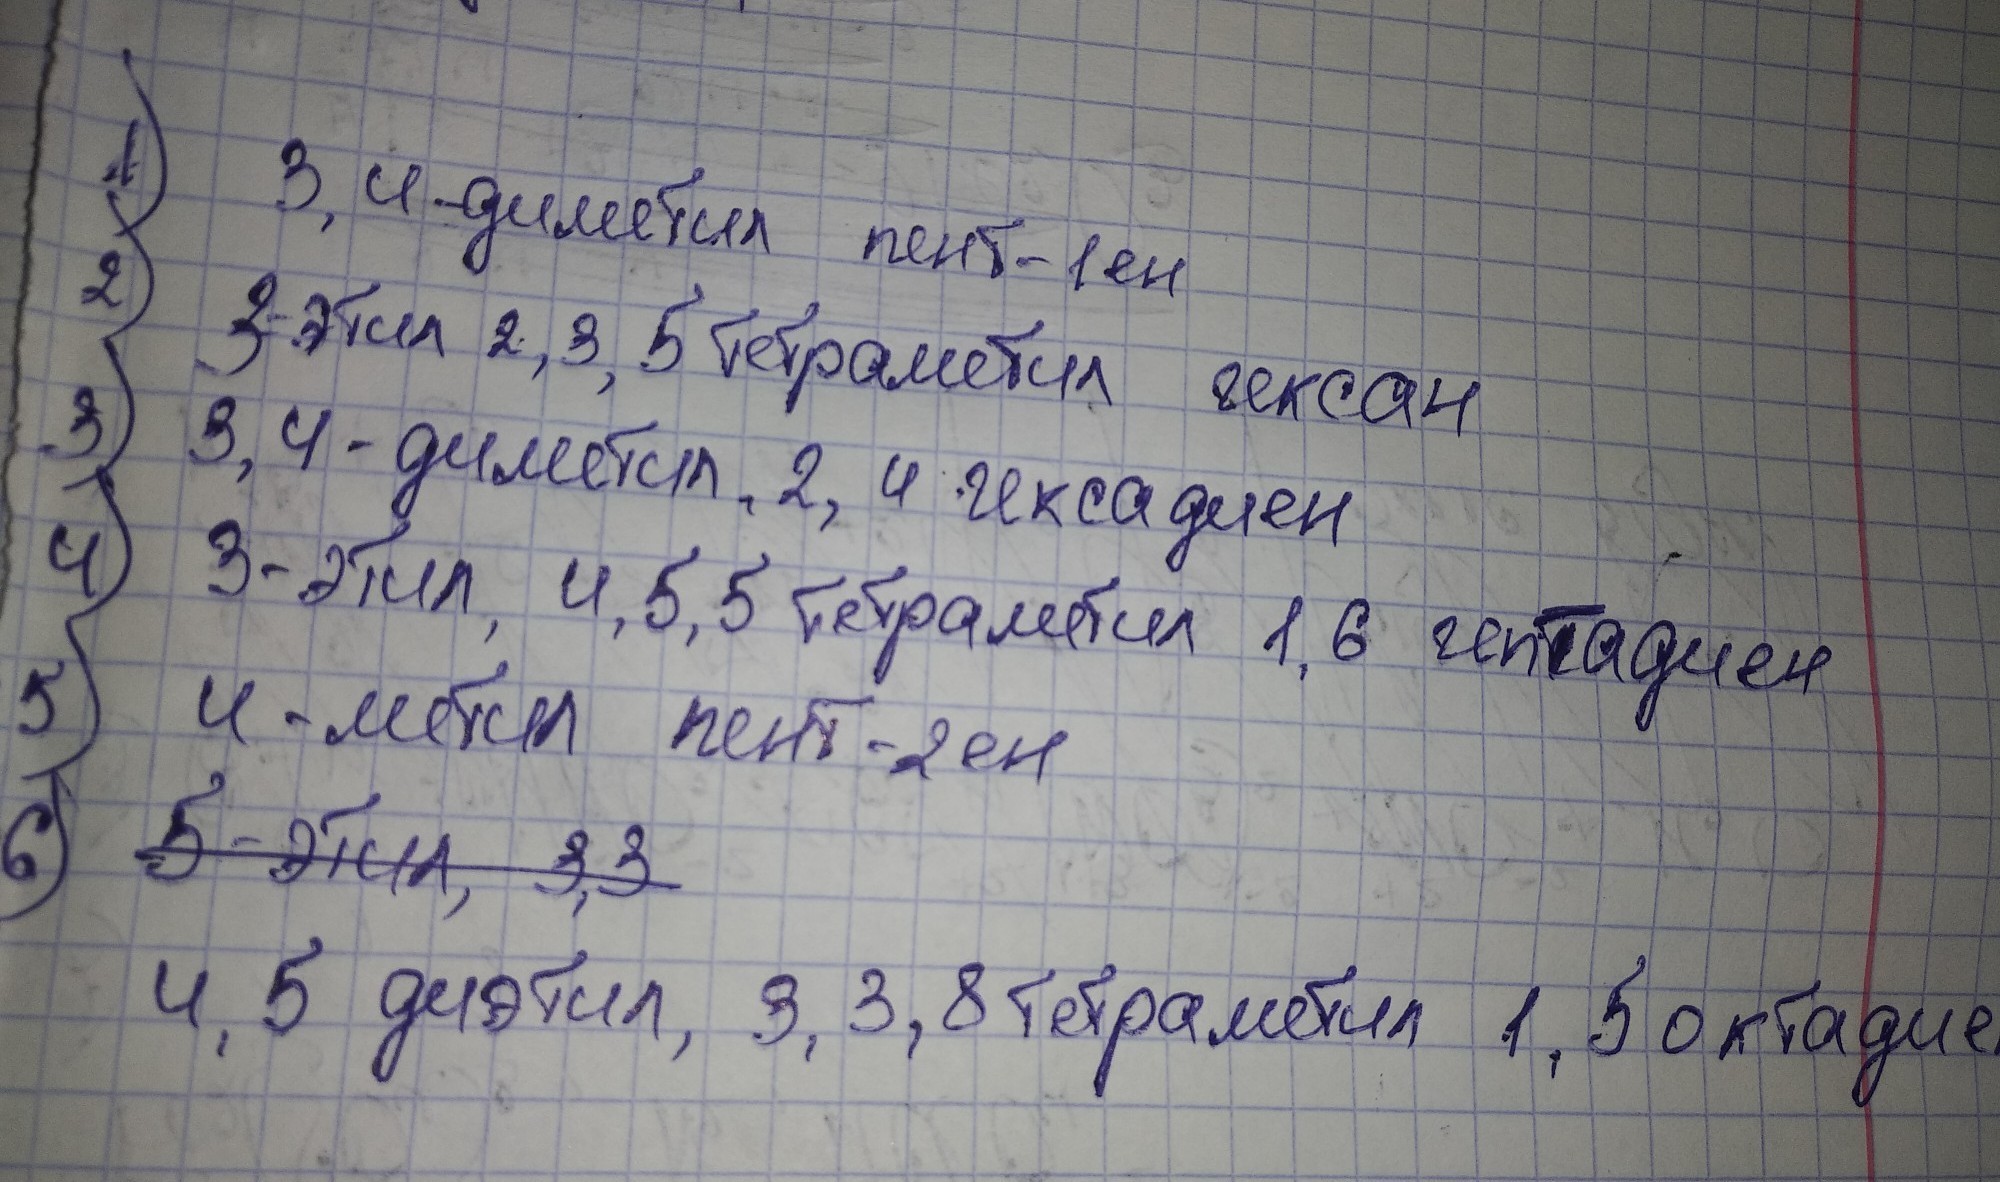 1) 3,4-диметил пент-1ен
2) 3-этил 2,3,5 тетраметил гексан
3) 3,4-диметил, 2,4 гексадиен
4) 3-этил, 4,5,5 тетраметил 1,6 гептадиен
5) 4-метил пент-2ен
6) 5-этил, 3,3
4,5 диэтил, 3,3,8 тетраметил 1,5 октадиен